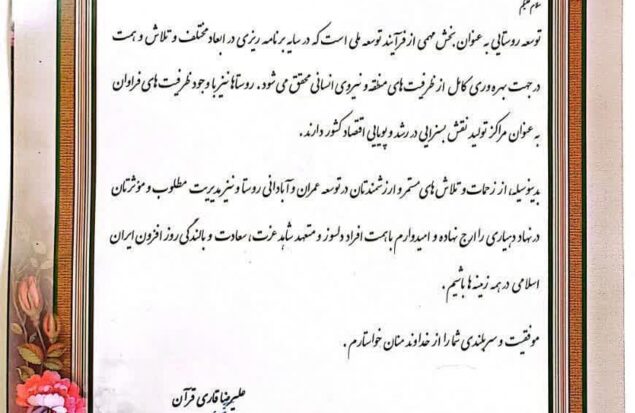 سلام علیکم
توسعه روستایی به عنوان بخش مهمی از فرآیند توسعه ملی است که در سایه برنامه ریزی در ابعاد مختلف و تلاش و همت
در جهت بهره وری کامل از ظرفیت های منطقه و نیروی انسانی محقق می شود. روستاها نیز با وجود ظرفیت های فراوان
به عنوان مراکز تولید نقش بسزایی در رشد و پویایی اقتصاد کشور دارند.
بدینوسیله، از زحمات و تلاش های مستمر و ارزشمندتان در توسعه عمران و آبادانی روستا و نیز مدیریت مطلوب و مؤثرتان
در نهاد دهیاری را ارج نهاده و امیدوارم با همت افراد دلسوز و متعهد شاهد عزت، سعادت و بالندگی روز افزون ایران
اسلامی در همه زمینه ها باشیم.
موفقیت و سربلندی شما را از خداوند منان خواستارم.
علیرضا قاری قرآن